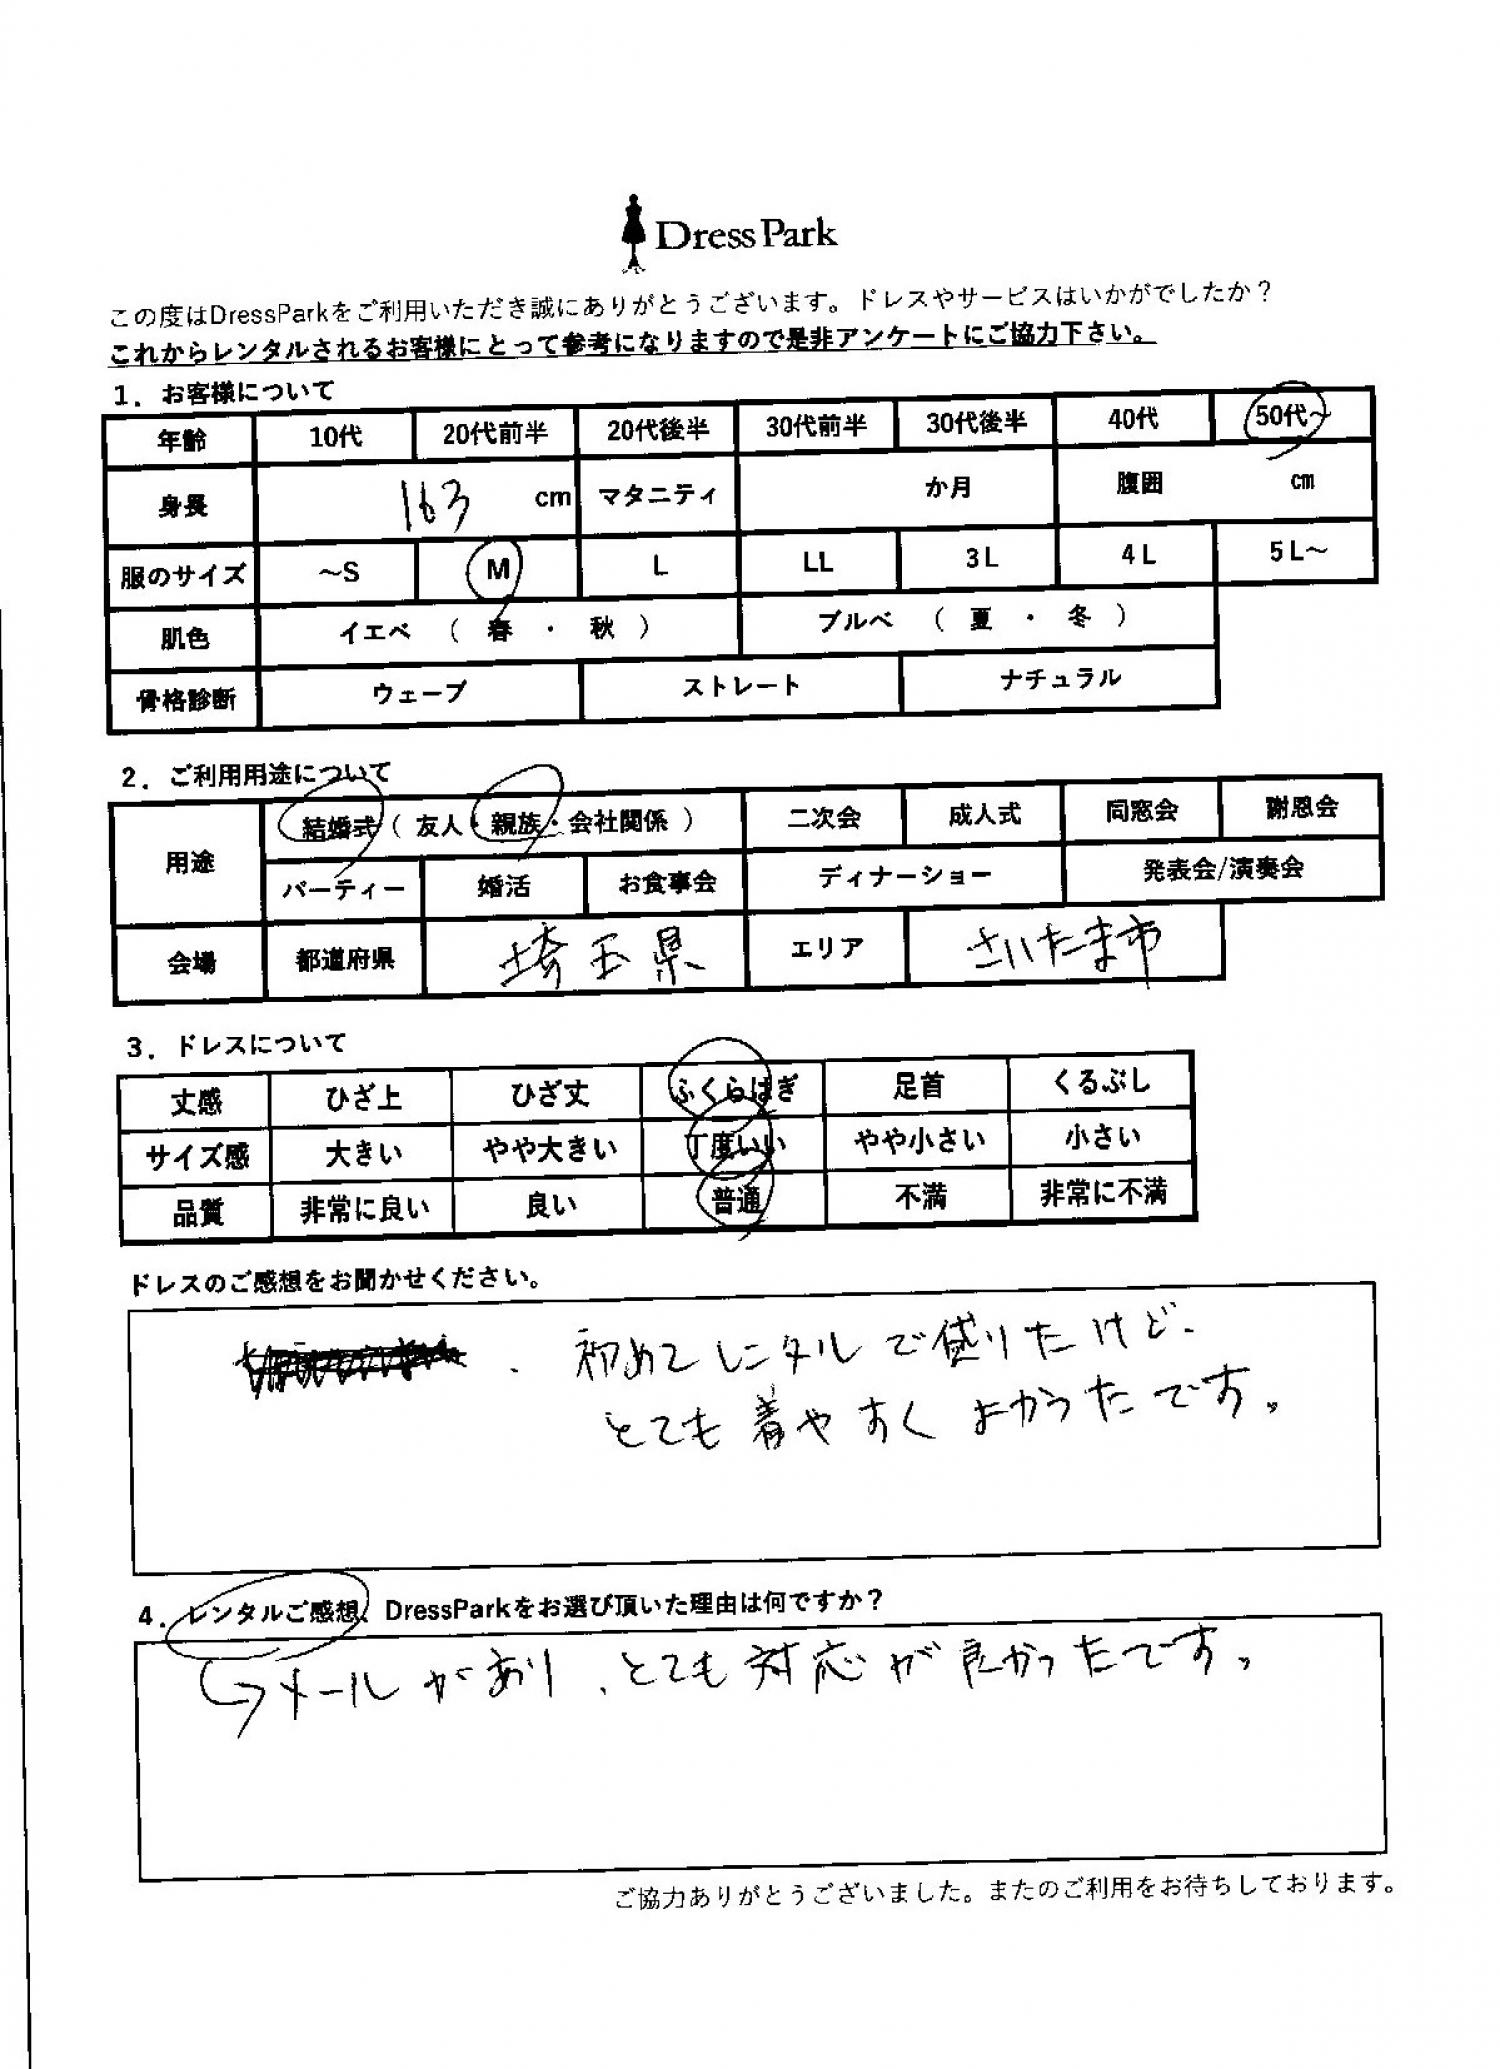 Dress Park
この度はDressParkをご利用いただき誠にありがとうございます。ドレスやサービスはいかがでしたか？
これからレンタルされるお客様にとって参考になりますので是非アンケートにご協力下さい。
1．お客様について
年齢 10代 20代前半 20代後半 30代前半 30代後半 40代 50代～
身長 163 cm マタニティ か月 腹囲 cm
服のサイズ ～S M L LL 3L 4L 5L～
肌色 イエベ （ 春 ・ 秋 ） ブルベ （ 夏 ・ 冬 ）
骨格診断 ウェーブ ストレート ナチュラル
2．ご利用用途について
用途 結婚式（ 友人・親族・会社関係 ） 二次会 成人式 同窓会 謝恩会
パーティー 婚活 お食事会 ディナーショー 発表会/演奏会
会場 都道府県 埼玉県 エリア さいたま市
3．ドレスについて
丈感 ひざ上 ひざ丈 ふくらはぎ 足首 くるぶし
サイズ感 大きい やや大きい 丁度いい やや小さい 小さい
品質 非常に良い 良い 普通 不満 非常に不満
ドレスのご感想をお聞かせください。
初めてレンタルで借りたけど、
とても着やすくよかったです。
4．レンタルご感想、DressParkをお選び頂いた理由は何ですか？
メールがあり、とても対応が良かったです。
ご協力ありがとうございました。またのご利用をお待ちしております。